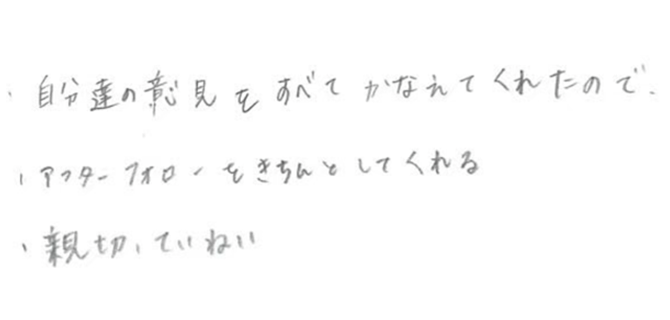 ・自分達の意見をすべてかなえてくれたので、
・アフターフォローをきちんとしてくれる
・親切、ていねい